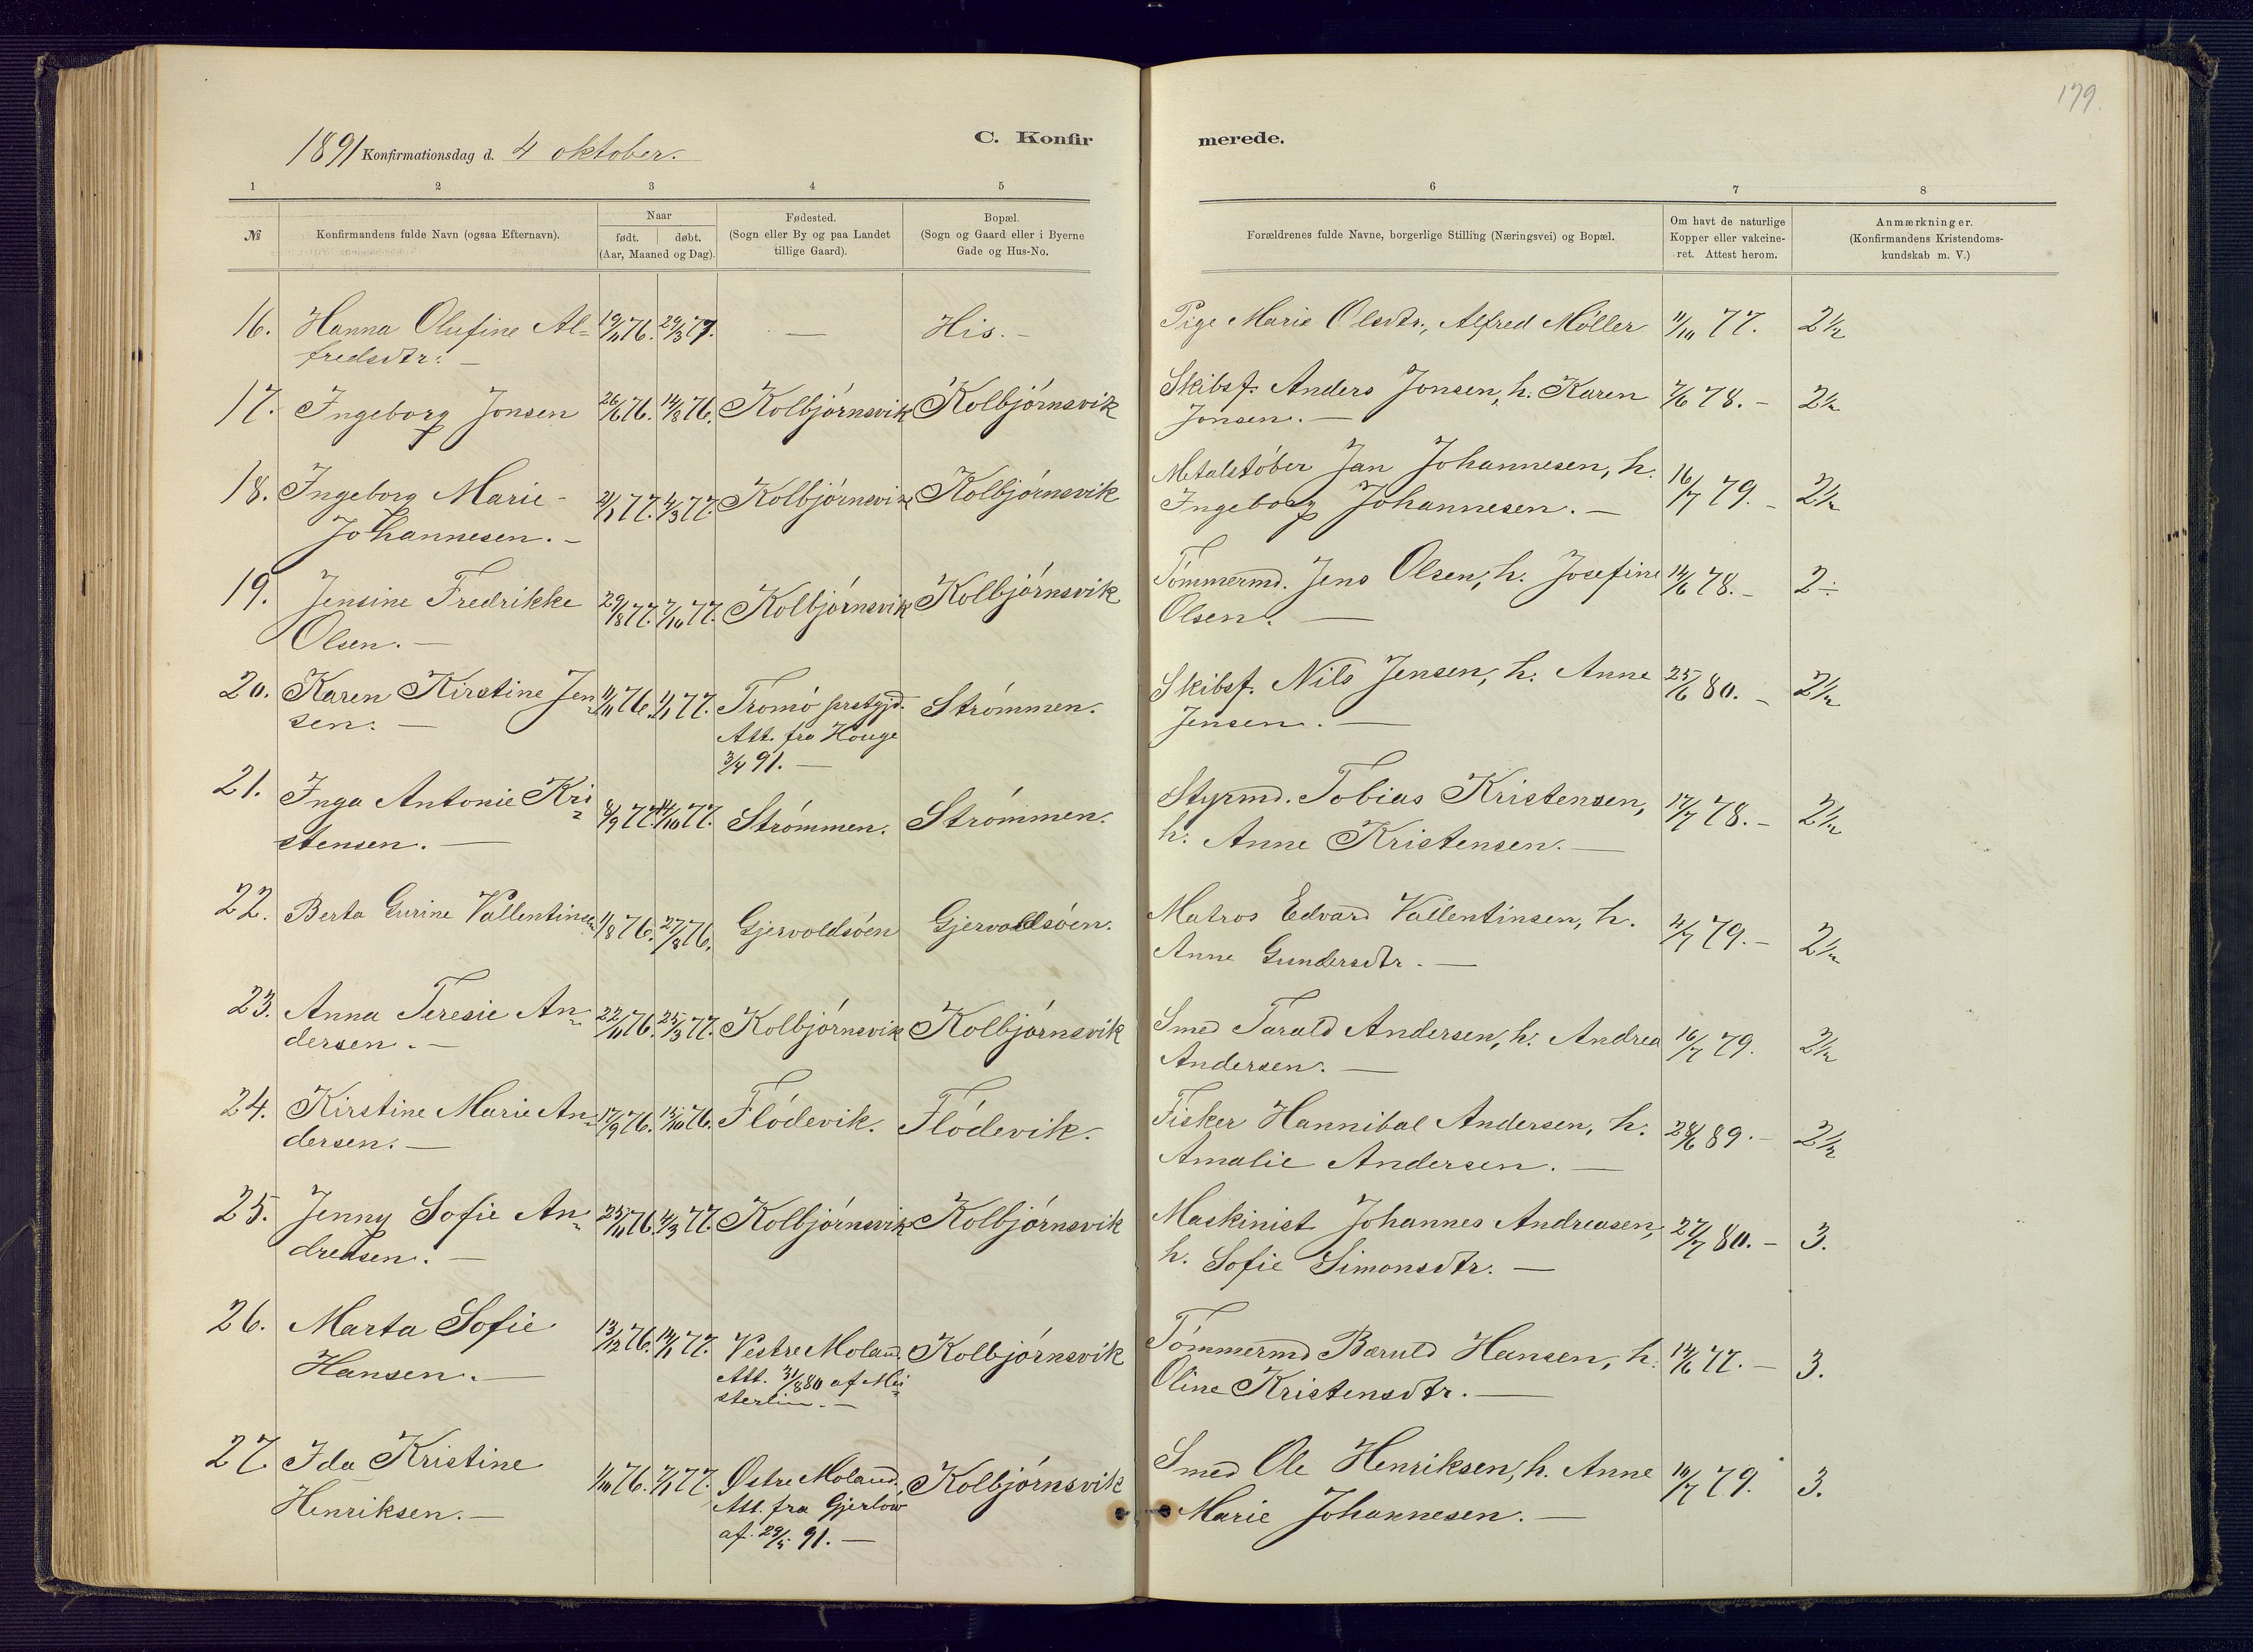 179.
1891 Konfirmationsdag d. 4 oktober.
C. Konfirmerede.
1 2 3 4 5 6 7 8
№
Konfirmandens fulde Navn (ogsaa Efternavn).
Naar
født. døbt.
(Aar, Maaned og Dag).
Fødested.
(Sogn eller By og paa Landet
tillige Gaard).
Bopæl.
(Sogn og Gaard eller i Byerne
Gade og Hus-No.
Forældrenes fulde Navne, borgerlige Stilling (Næringsvei) og Bopæl.
Om havt de naturlige
Kopper eller vakcine-
ret. Attest herom.
Anmærkninger.
(Konfirmandens Kristendoms-
kundskab m. V.)
16. Hanna Olufine Al= 19/11 76. 29/3 77. — His. — Pige Marie Olsdtr., Alfred Möller 11/10 77. 2½
fredsdtr. —
17. Ingeborg Jonsen 26/6 76. 14/8 76. Kolbjórnsvik Kolbjórnsvik Skibsf. Anders Jonsen, h. Karen 7/6 78. — 2½
Jonsen. —
18. Ingeborg Marie Kolbjórnsvik Kolbjórnsvik Metalstóber Jan Johannesen, h. 16/7 79. — 2½
Johannesen. — 21/1 77. 4/3 77. Ingeborg Johannesen. —
19. Jensine Fredrikke 29/8 77. 7/10 77. Kolbjórnsvik Kolbjórnsvik Tómmermd. Jens Olsen, h. Josefine 14/6 78. — 2÷
Olsen. — Olsen. —
20. Karen Kirstine Jen= 11/11 76. 1/1 77. Tromó prstgjd. Strómmen. Skibsf. Nils Jensen, h. Anne 25/6 80. — 2½
sen. — Att. fra Houge Jensen. —
3/4 91. —
21. Inga Antonie Kri= 8/9 77. 14/10 77. Strómmen. Strómmen. Styrmd. Tobias Kristensen, 17/7 78. — 2½
stensen. — h. Anne Kristensen. —
22. Berta Gurine Vallentinsen 1/8 76. 27/8 76. Gjervoldsóen Gjervoldsóen. Matros Edvard Vallentinsen, h. 4/7 79. — 2½
Anne Gundersdtr. —
23. Anna Teresie An= 22/11 76. 25/3 77. Kolbjórnsvik Kolbjórnsvik Smed Tarald Andersen, h. Andrea 16/7 79. 2½
dersen. — Andersen. —
24. Kirstine Marie An= 17/9 76. 15/10 76. Flódevik. Flódevik. Fisker Hannibal Andersen, h. 28/6 89. — 2½
dersen. — Amalie Andersen. —
25. Jenny Sofie An= 25/11 76. 4/3 77. Kolbjórnsvik Kolbjórnsvik Maskinist Johannes Andreasen, 27/7 80. — 3.
dreasen. — h. Sofie Simonsdtr. —
26. Marta Sofie 13/12 76. 14/1 77. Vestre Moland. Kolbjórnsvik Tómmermd Baruld Hansen, h. 14/6 77. — 3.
Hansen. — Att. 31/8 80 af Mei= Oline Kristensdtr. —
sterlin. —
27. Ida Kristine 1/10 76. 7/1 77. Østre Moland. Kolbjórnsvik Smed Ole Henriksen, h. Anne 16/7 79. 3.
Henriksen. — Att. fra Gjerlów Marie Johannesen. —
af 29/5 91. —